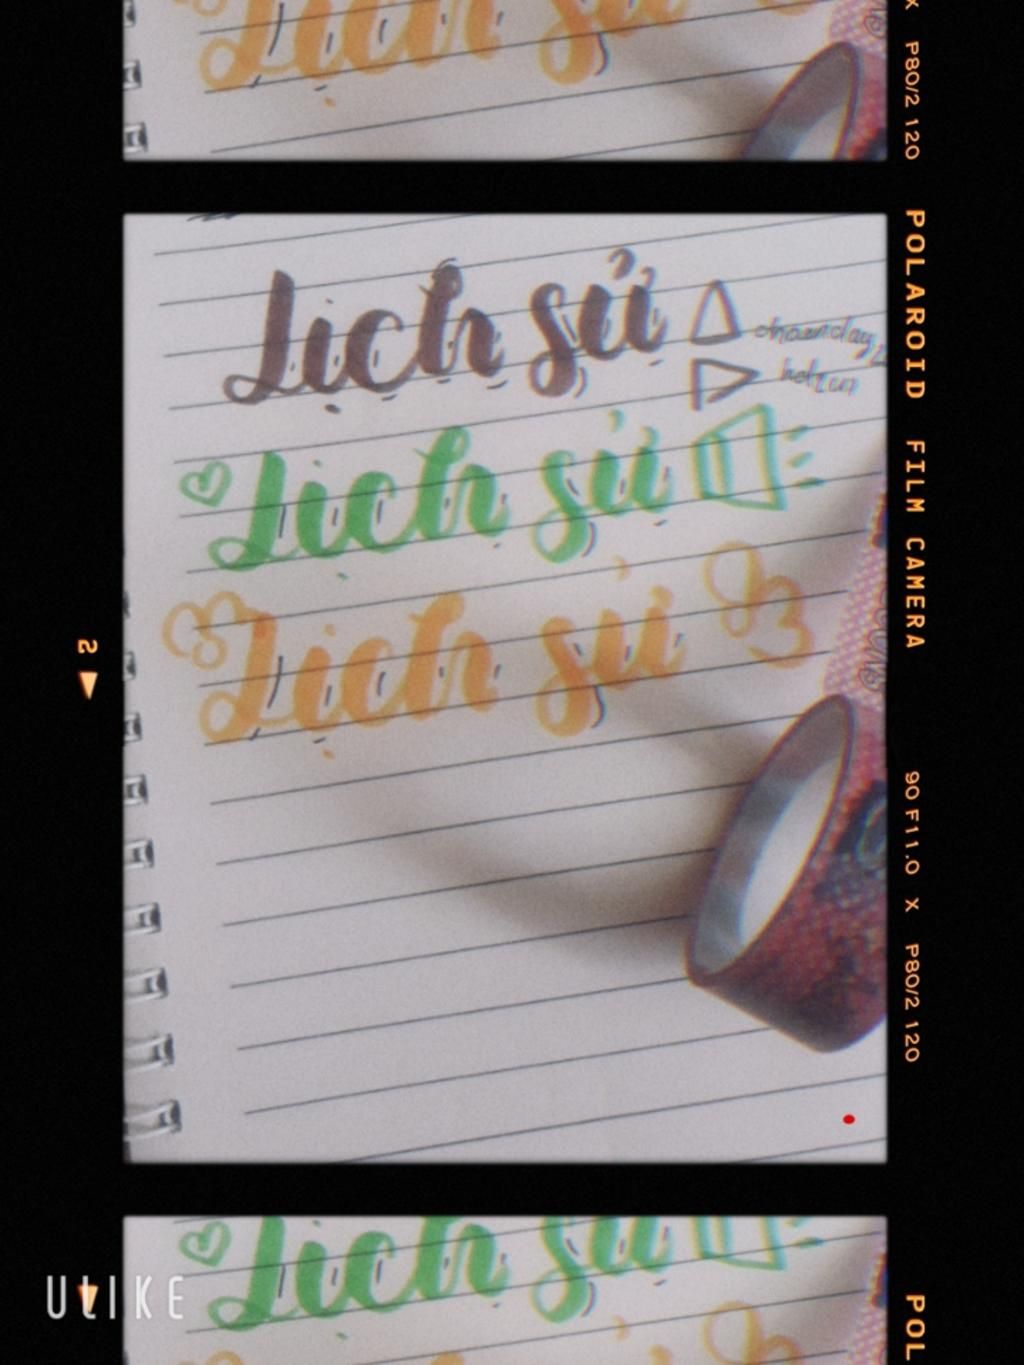 Lịch sử
P80/2 120
Lịch sử
Lịch sử
Lịch sử
POLAROID FILM CAMERA
90 F11.0 X P80/2 120
2
Lịch sử
ULIKE
POL